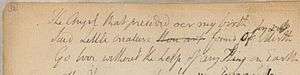 The Angel that presided oer my birth
Said Little creature thou art formd of Joy & Mirth
Go love without the help of any thing on Earth